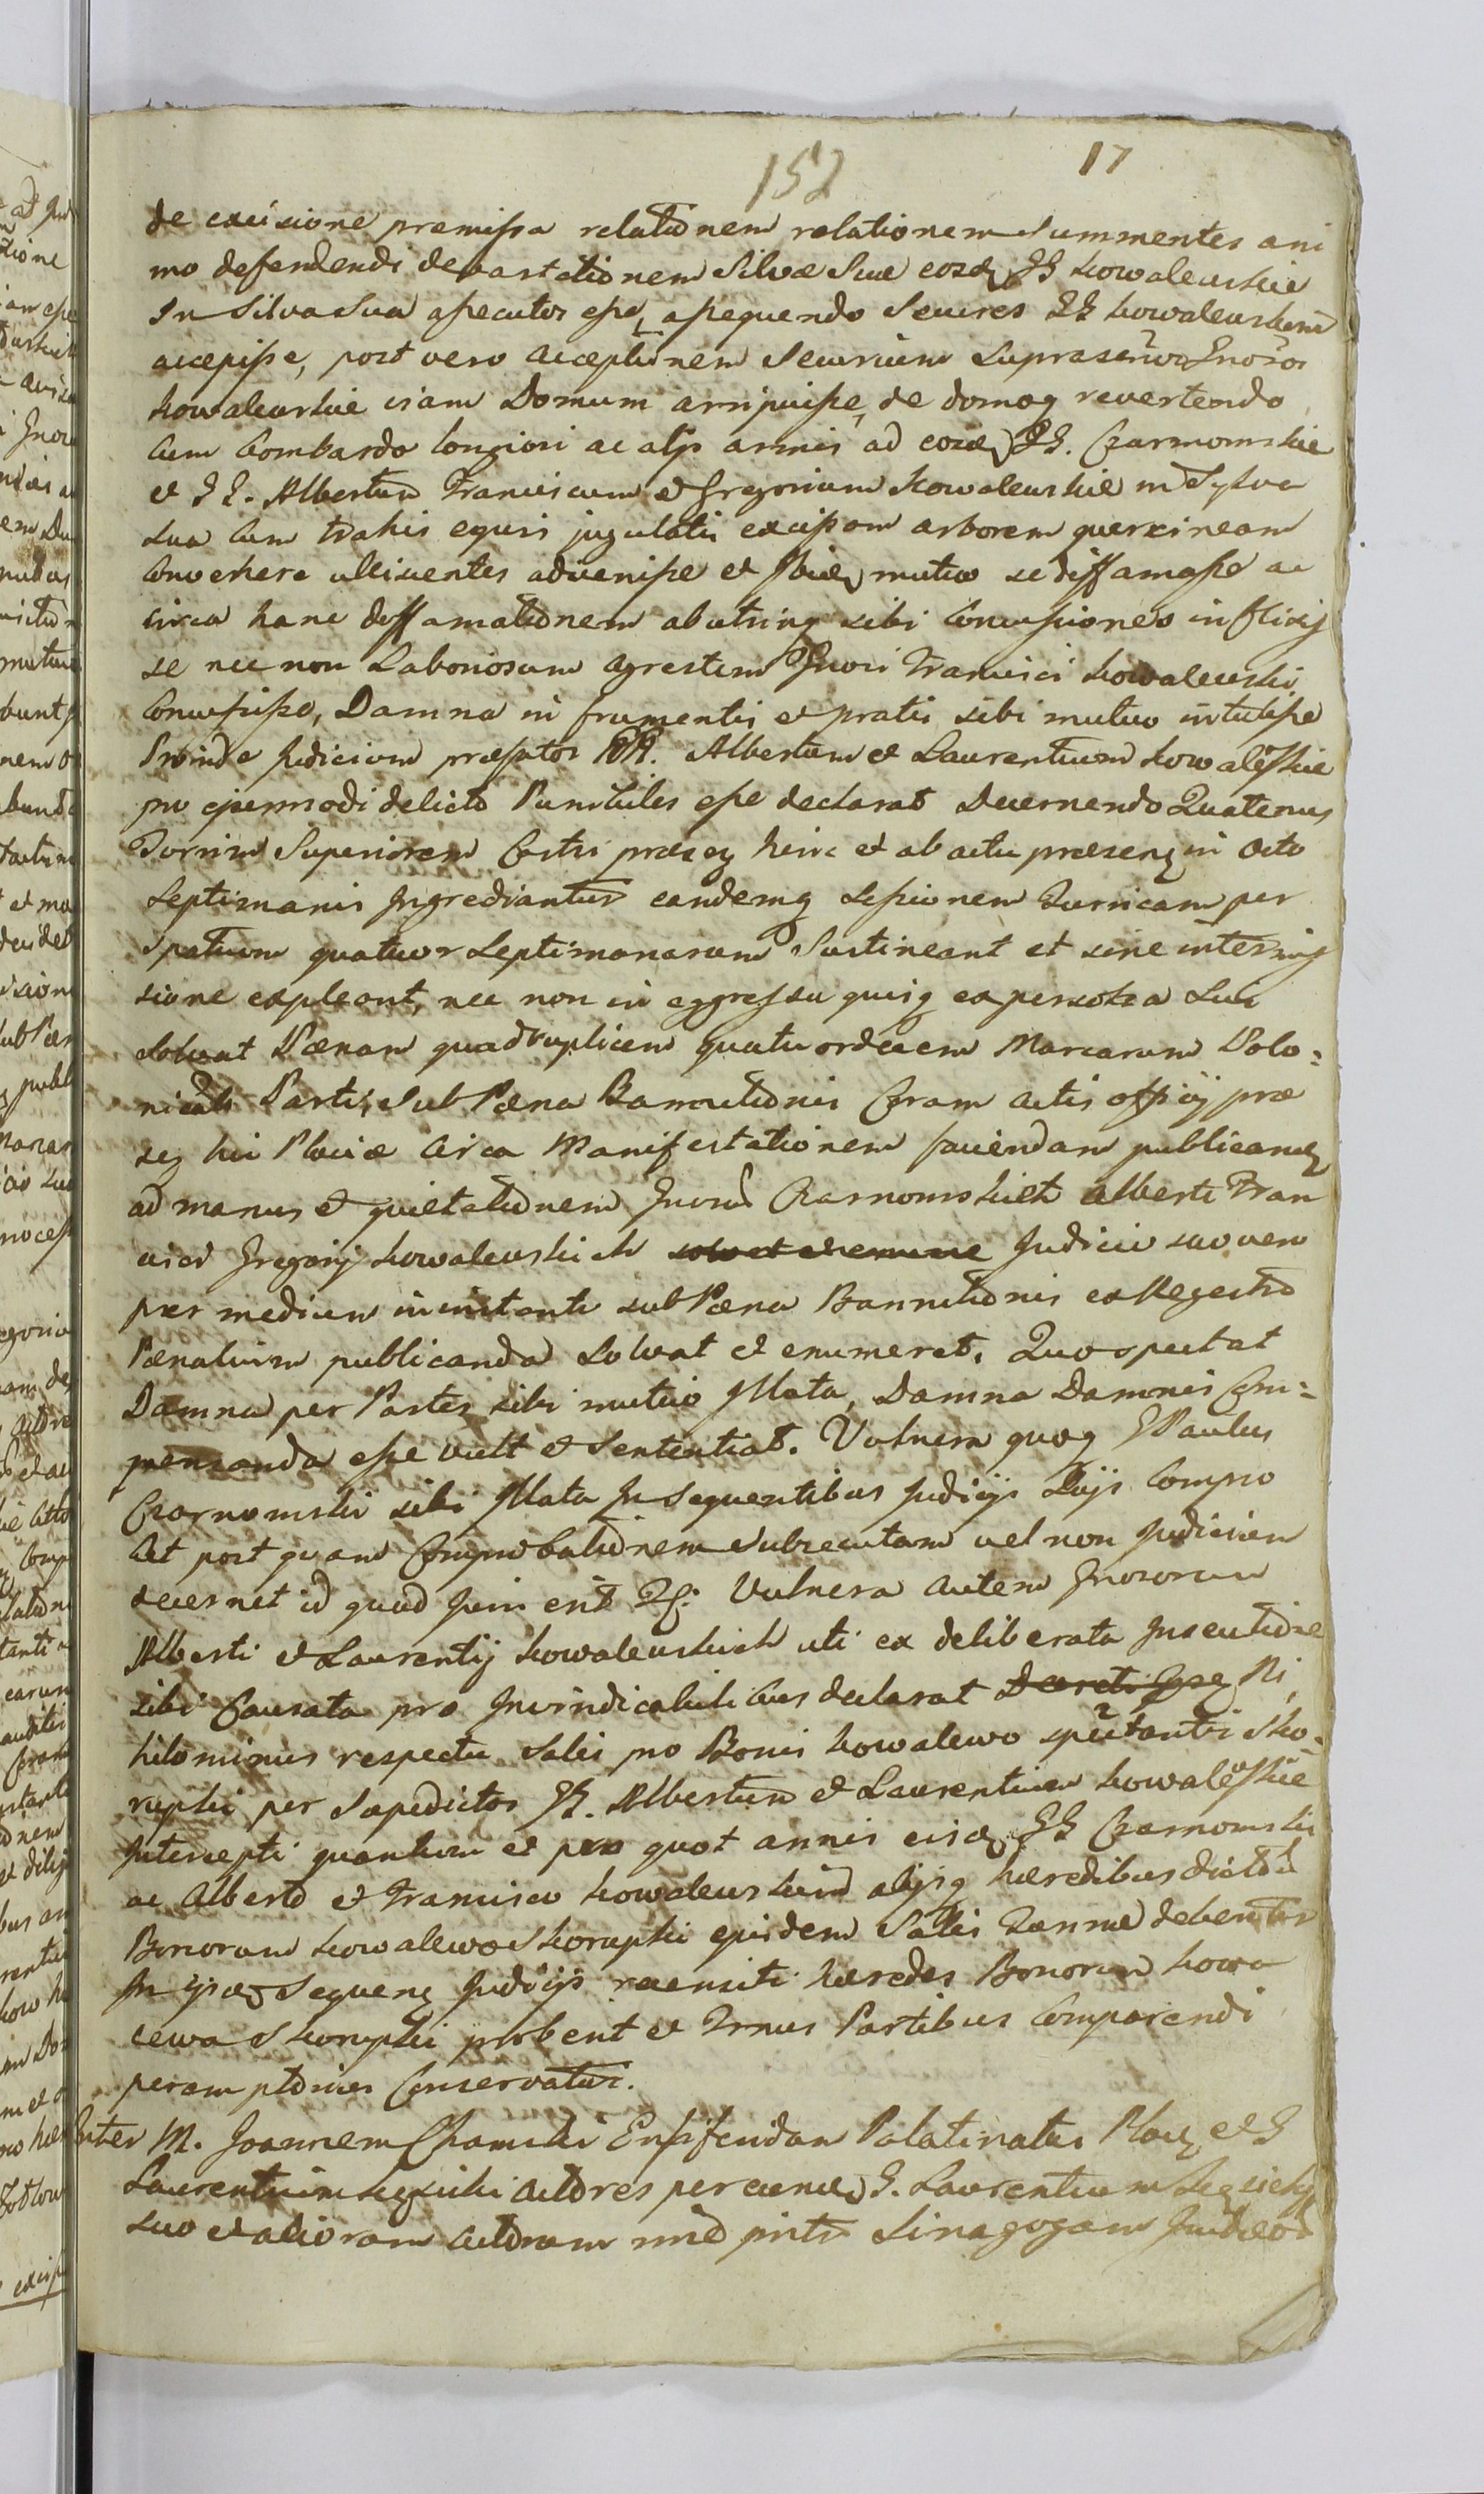 152 17
de excisione premissa relationem relationem Summentes ani
mo defendendi devastationem Silvae Suae eosdq GG Kowalewskie
In Silva Sua assecutos esse, assequendo Secures GG Kowalewskim
accepisse, post vero acceptionem Securium Suprascrtos Gnosos
Kowalewskie viam Domum arripuisse, de domoq revertendo
Cum Bombardo longiori ac alys armis ad eosdq GG. Czarnomskie
et GG. Albertum Franciscum et Gregorium Kowalewskie in Sylva
sua cum trahis equis jugulatis excissam arborem quercineam
Convehere allicientes advenisse et Ibidq mutuo se diffamasse ac
circa hanc diffamationem ab utrinq sibi Concussiones inflixis
se nec non Laboriosum agrestem Gnosi Francisci Kowalewski
Concussisse, Damna in frumentis et pratis sibi mutuo intulisse
Proinde Judicium praefatos GG. Albertum et Laurentium Kowalewskie
pro ejusmodi delicto Punibiles esse declarat Decernendo Quatenus
Turrim Superiorem Castri praesq hinc et ab actu praesenq in octo
Septimanis Ingrediantur eandemq Sessionem Turricam per
Spatium quatuor Septimanarum Sustineant et sine intermis
sione expleant, nec non in eggressu quisq ex persona sua
solvat Paenam quadruplicem quatuordecem Marcarum Polo=
nicals Parti, Sub Paena Bannitionis Coram actis officij prae
seq hic Plociae circa Manifestationem faciendam publicandq
ad manus et quietationem Gnosor Czarnomskich Alberti Fran
cisci Gregorij Kowalewskich solvat et enumeret Judicio suo vero
per medium in instanti sub Paena Bannitionis ex Regestro
Paenalium publicanda solvat et enumeret. Quo spectat
Damna per Partes sibi mutuo Illata, Damna Damnis Com=
pensanda esse vult et Sententiat. Vulnera quoq G Paulus
Czarnomski sibi Illata In Sequentibus Judicijs Dvijs Compro
bet post quam Comprobationem Subsecutam vel non Judicium
decernet id quod Juris erit Vulnera autem Gnosorum
Alberti et Laurentij Kowalewskich uti ex deliberata Insecutione
sibi Causata pro Invindicabilibus declarat Decreti Ipse Ni
hilominus respectu Salis pro Bonis Kowalewo spectantis Sko=
rupki per Sapedictos GG. Albertum et Laurentium Kowalewskie
Intercepti quantum et pro quot annis eisdq GG Czarnomski
ac Alberto et Francisco Kowalewskim alijsq haeredibus dictor
Bonorum Kowalewo Skorupki ejusdem Salis Tonnae debentur
In ipsis Sequenq Judicijs recensiti haeredes Bonorum Kowa
lewa Skorupki probent et Trnus Partibus Comparendi
peremptorius Conservatur.
Inter M. Joannem Chamski Ensiferidam Palatinatus Plocq et G
Laurentium Actores per eundq G. Laurentium
suo et aliorum Actorum nne pntr Sinagogam Judaeor